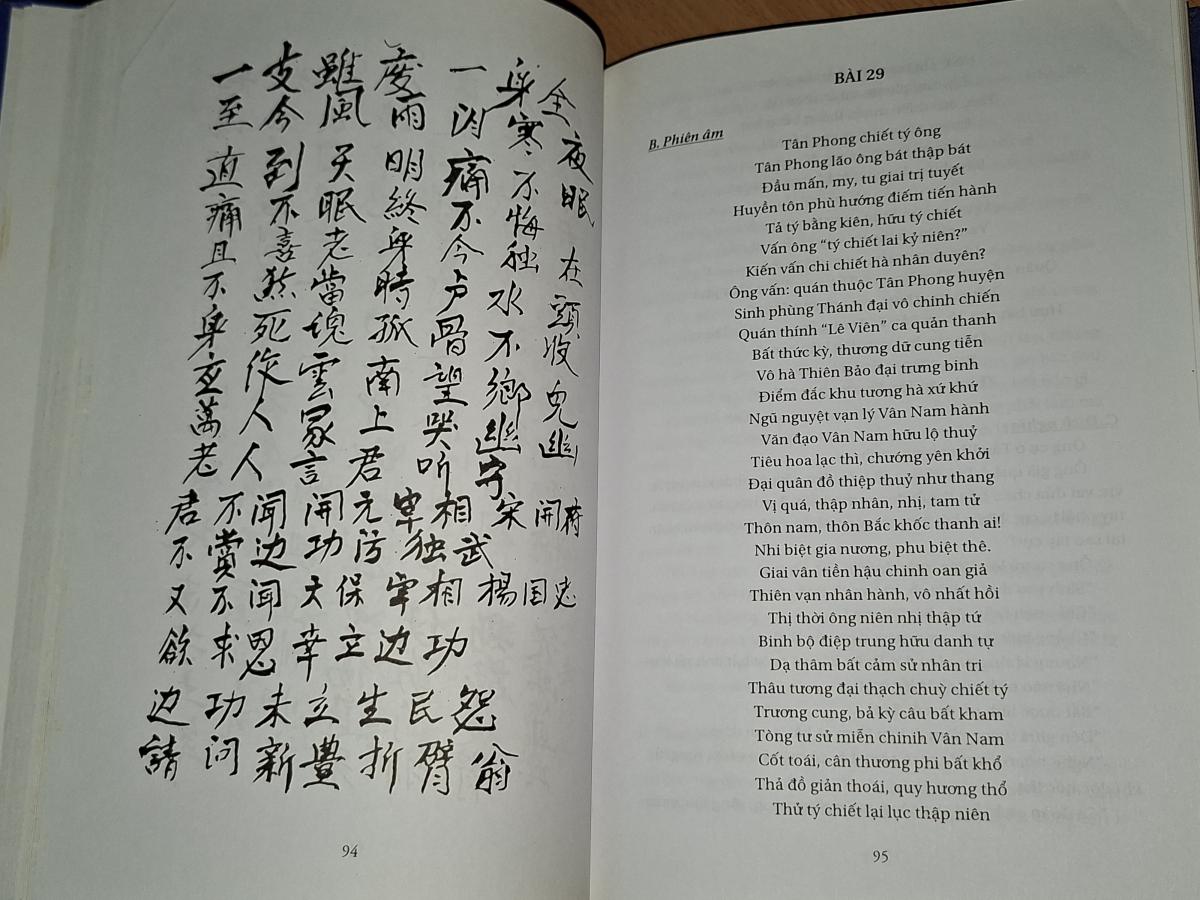 一支雖废一身全
至今風雨寒夜
直到天明痛不眠
痛不眠終不悔
且喜老身今独在
不然當時卢水頭
身死魂孤骨不收
应作雲南望鄉鬼
萬人冢上哭幽幽
老人言君听
君不聞開元宰相宋開府
不賞边功防独武
又不聞天保宰相楊国忠
欲求恩幸立边功
边功未立生民怨
請问新豊折臂翁
94
BÀI 29
B. Phiên âm
Tân Phong chiết tý ông
Tân Phong lão ông bát thập bát
Đầu mấn, my, tu giai trị tuyết
Huyền tôn phù hướng điếm tiến hành
Tả tý bằng kiên, hữu tý chiết
Vấn ông “tý chiết lai kỷ niên?”
Kiến vấn chi chiết hà nhân duyên?
Ông vấn: quán thuộc Tân Phong huyện
Sinh phùng Thánh đại vô chinh chiến
Quán thính “Lê Viên” ca quản thanh
Bất thức kỳ, thương dữ cung tiễn
Vô hà Thiên Bảo đại trưng binh
Điểm đắc khu tương hà xứ khứ
Ngũ nguyệt vạn lý Vân Nam hành
Văn đạo Vân Nam hữu lộ thuỷ
Tiêu hoa lạc thì, chướng yên khởi
Đại quân đồ thiệp thuỷ như thang
Vị quá, thập nhân, nhị, tam tử
Thôn nam, thôn Bắc khốc thanh ai!
Nhi biệt gia nương, phu biệt thê.
Giai vân tiền hậu chinh oan giả
Thiên vạn nhân hành, vô nhất hồi
Thị thời ông niên nhị thập tứ
Binh bộ điệp trung hữu danh tự
Dạ thâm bất cảm sử nhân tri
Thâu tương đại thạch chuỳ chiết tý
Trương cung, bả kỳ câu bất kham
Tòng tư sử miễn chinih Vân Nam
Cốt toái, cân thương phi bất khổ
Thả đồ giản thoái, quy hương thổ
Thử tý chiết lại lục thập niên
95